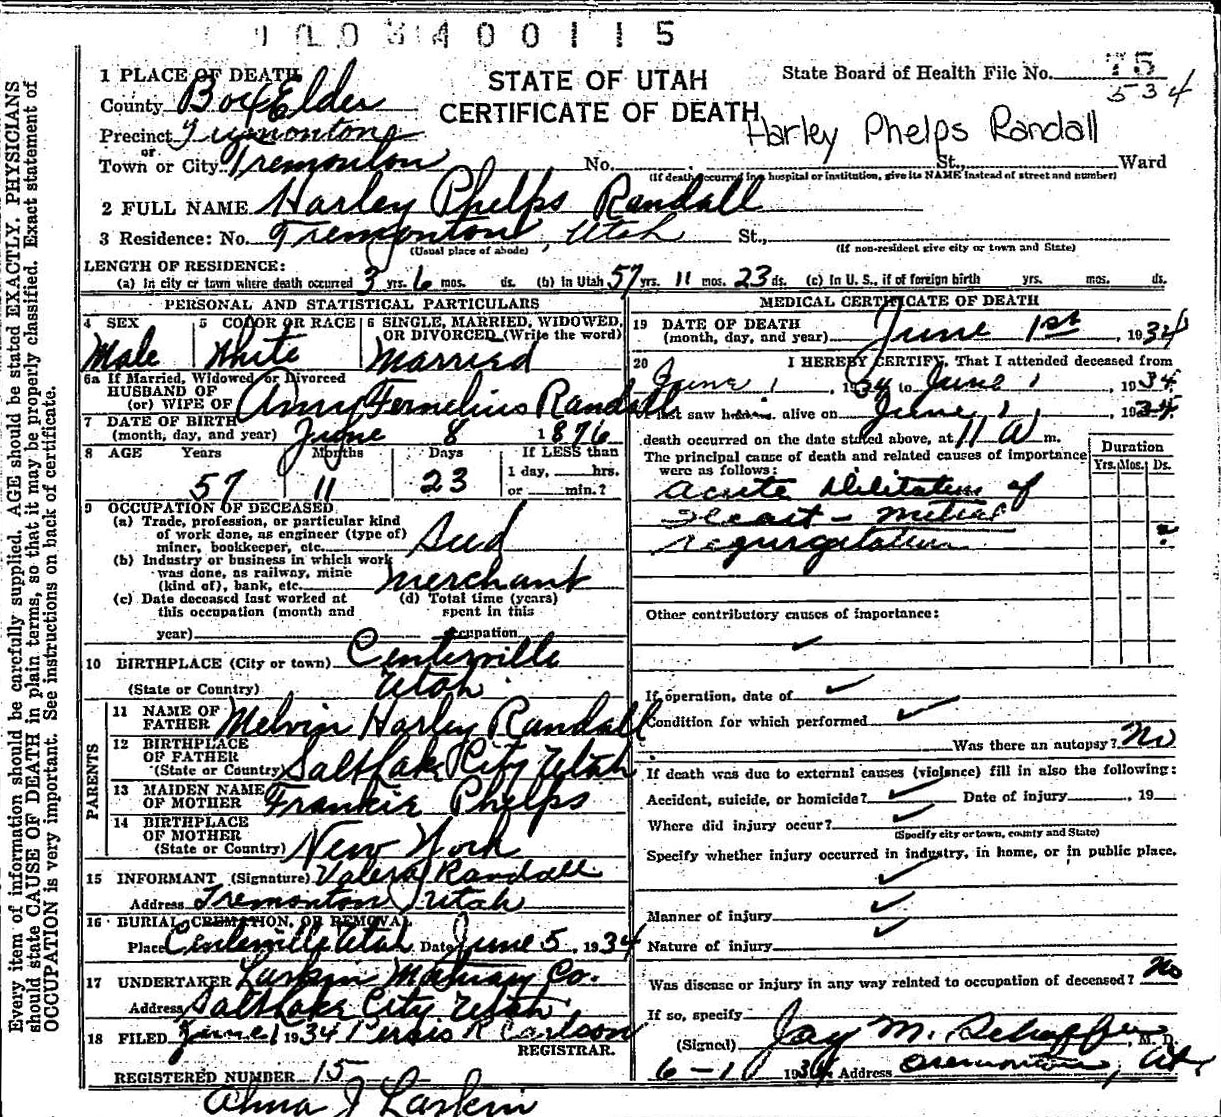 1103400115
1 PLACE OF DEATH
STATE OF UTAH
CERTIFICATE OF DEATH
State Board of Health File No. 75
534
County Box Elder
Harley Phelps Randall
Precinct Tremonton
or
Town or City Tremonton No. St. Ward
(If death occurred in a hospital or institution, give its NAME instead of street and number)
2 FULL NAME Harley Phelps Randall
3 Residence: No. Tremonton, Utah St.,
(Usual place of abode) (If non-resident give city or town and State)
LENGTH OF RESIDENCE:
(a) In city or town where death occurred 3 yrs. 6 mos. ds. (b) In Utah 57 yrs. 11 mos. 23 ds. (c) In U.S., if of foreign birth yrs. mos. ds.
PERSONAL AND STATISTICAL PARTICULARS
4 SEX
Male
5 COLOR OR RACE
White
6 SINGLE, MARRIED, WIDOWED, OR DIVORCED (Write the word)
Married
6a If Married, Widowed or Divorced
HUSBAND OF
(or) WIFE OF Amy Fernelius Randall
7 DATE OF BIRTH
(month, day, and year) June 8 1876
8 AGE Years Months Days If LESS than
1 day, hrs.
57 11 23 or min.?
9 OCCUPATION OF DECEASED
(a) Trade, profession, or particular kind
of work done, as engineer (type of)
miner, bookkeeper, etc. Seed
(b) Industry or business in which work
was done, as railway, mine
(kind of), bank, etc. Merchant
(c) Date deceased last worked at
this occupation (month and
year)
(d) Total time (years)
spent in this
occupation
10 BIRTHPLACE (City or town) Centerville
(State or Country) Utah
PARENTS
11 NAME OF
FATHER Melvin Harley Randall
12 BIRTHPLACE
OF FATHER
(State or Country) Salt Lake City Utah
13 MAIDEN NAME
OF MOTHER Frankie Phelps
14 BIRTHPLACE
OF MOTHER
(State or Country) New York
15 INFORMANT (Signature) Valera Randall
Address Tremonton Utah
16 BURIAL, CREMATION, OR REMOVAL
Place Centerville Utah Date June 5, 1934
17 UNDERTAKER Larkin Mortuary Co.
Address Salt Lake City Utah
18 FILED June 1 1934 Persis R Carlson
REGISTRAR.
REGISTERED NUMBER 15
Alma J Larkin
MEDICAL CERTIFICATE OF DEATH
19 DATE OF DEATH
(month, day, and year) June 1st, 1934
20 I HEREBY CERTIFY, That I attended deceased from
June 1, 1934 to June 1, 1934
I last saw him alive on June 1, 1934
death occurred on the date stated above, at 11 A m.
The principal cause of death and related causes of importance
were as follows:
Duration
Yrs. Mos. Ds.
Acute Dilitation of
Heart - Mitral
regurgitation ?
Other contributory causes of importance:
If operation, date of
Condition for which performed
Was there an autopsy? No
If death was due to external causes (violence) fill in also the following:
Accident, suicide, or homicide? Date of injury , 19
Where did injury occur?
(Specify city or town, county and State)
Specify whether injury occurred in industry, in home, or in public place.
Manner of injury
Nature of injury
Was disease or injury in any way related to occupation of deceased? No
If so, specify
(Signed) Jay M. Schaffer, M. D.
6-1 1934 Address Tremonton, Ut.
Every item of information should be carefully supplied. AGE should be stated EXACTLY. PHYSICIANS
should state CAUSE OF DEATH in plain terms, so that it may be properly classified. Exact statement of
OCCUPATION is very important. See instructions on back of certificate.